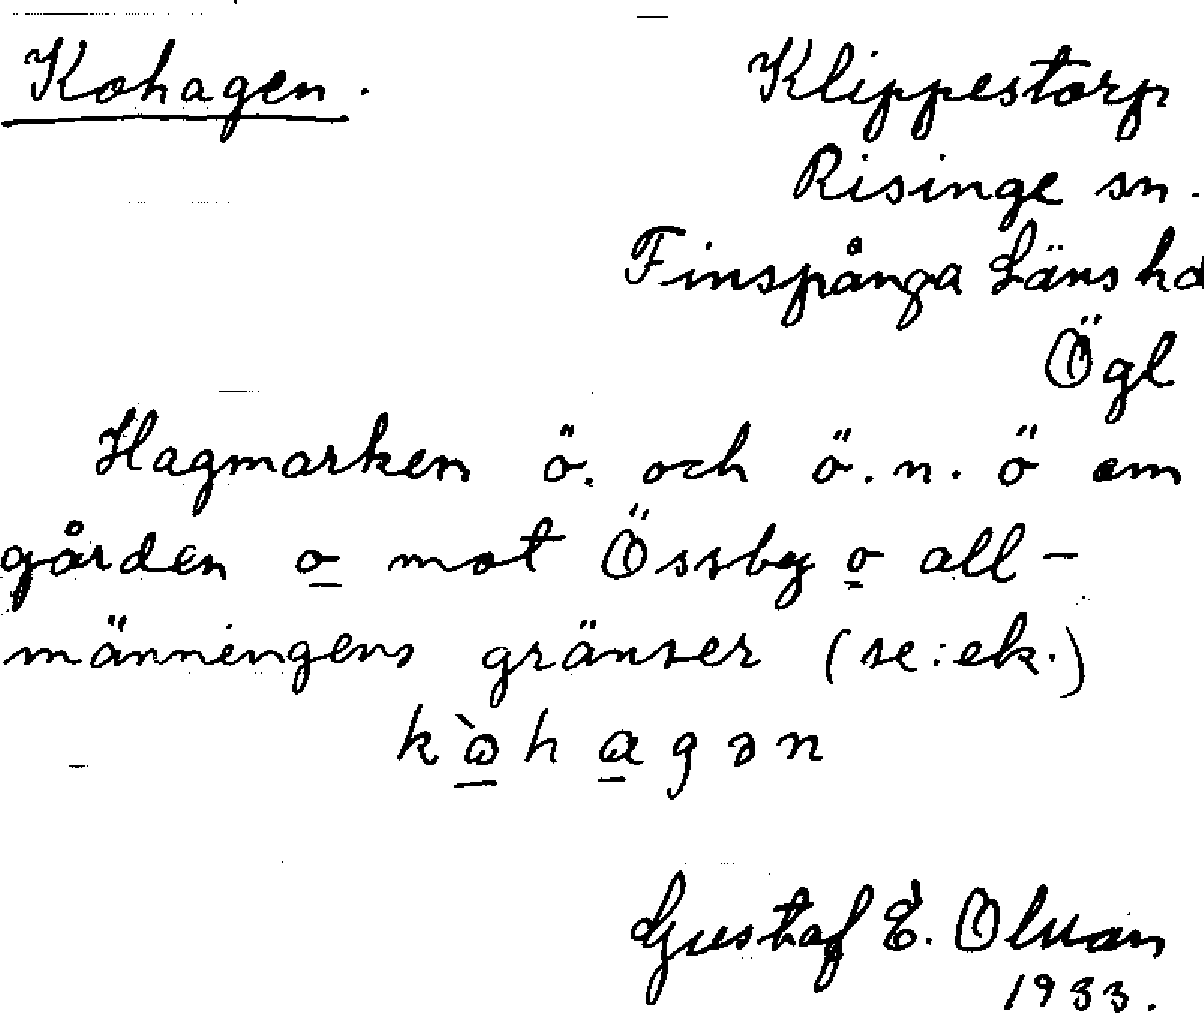 Kohagen.
Klippestorp
Risinge sn.
Finspånga Läns hd
Ögl
Hagmarken ö. och ö. n. ö om
gården o mot Össby o all-
männingens gränser (se: ek.)
kòhagən
Gustaf E. Olsson
1933.